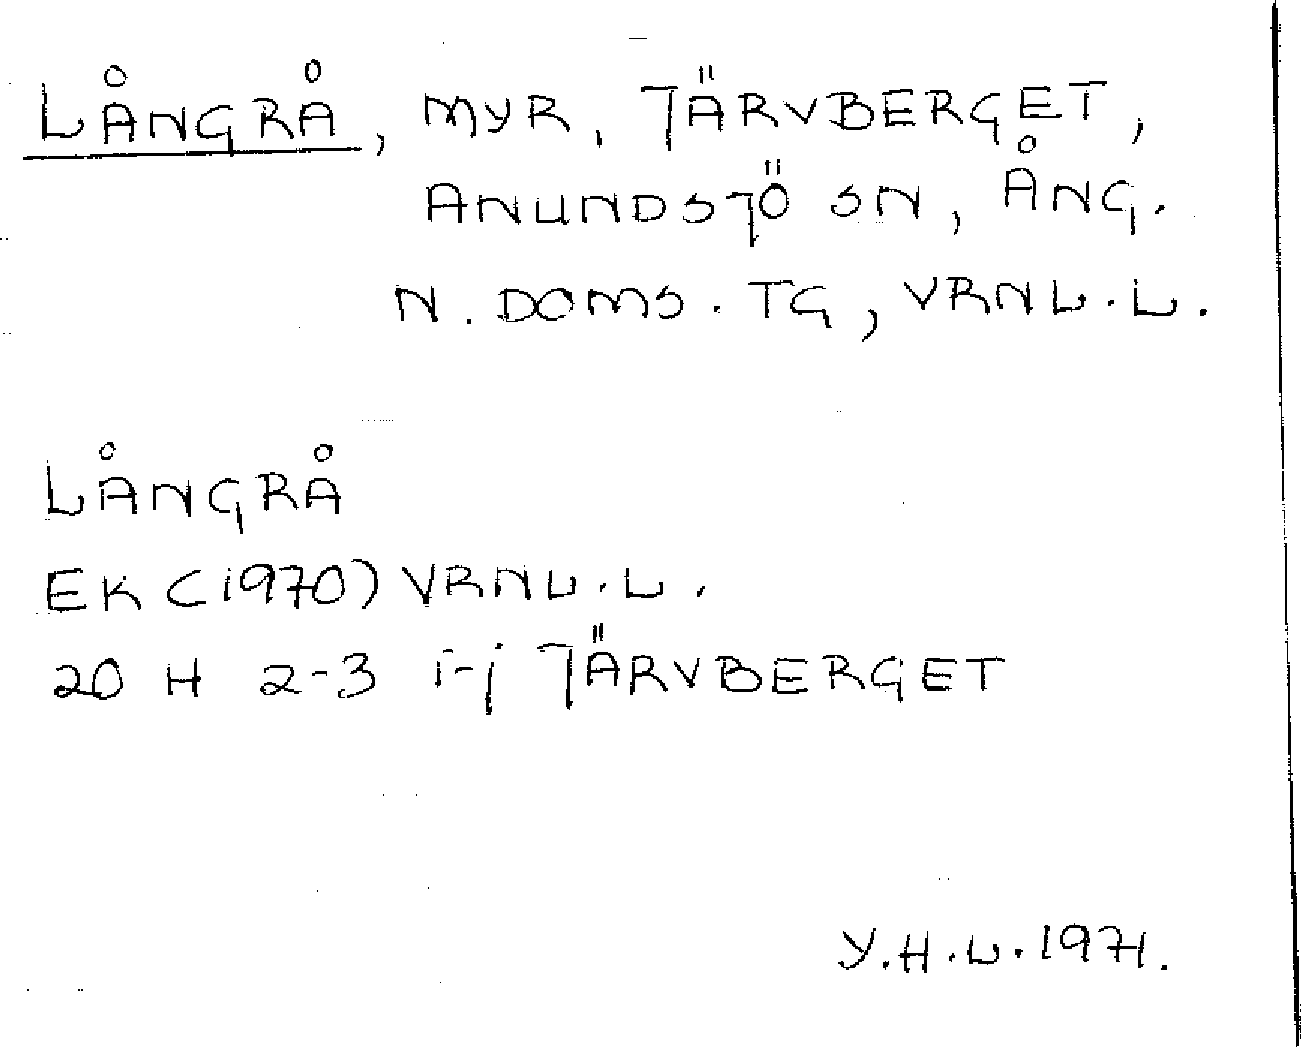 LÅNGRÅ, MYR, JÄRVBERGET,
ANUNDSJÖ SN, ÅNG.
N. DOMS. TG, VRNL.L.
LÅNGRÅ
EK (1970) VRNL.L.
20 H 2-3 i-j JÄRVBERGET
Y.H.L. 1971.